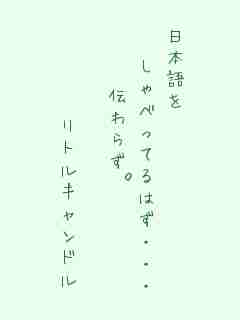 日本語を
しゃべってるはず・・・
伝わらず。
リトルキャンドル